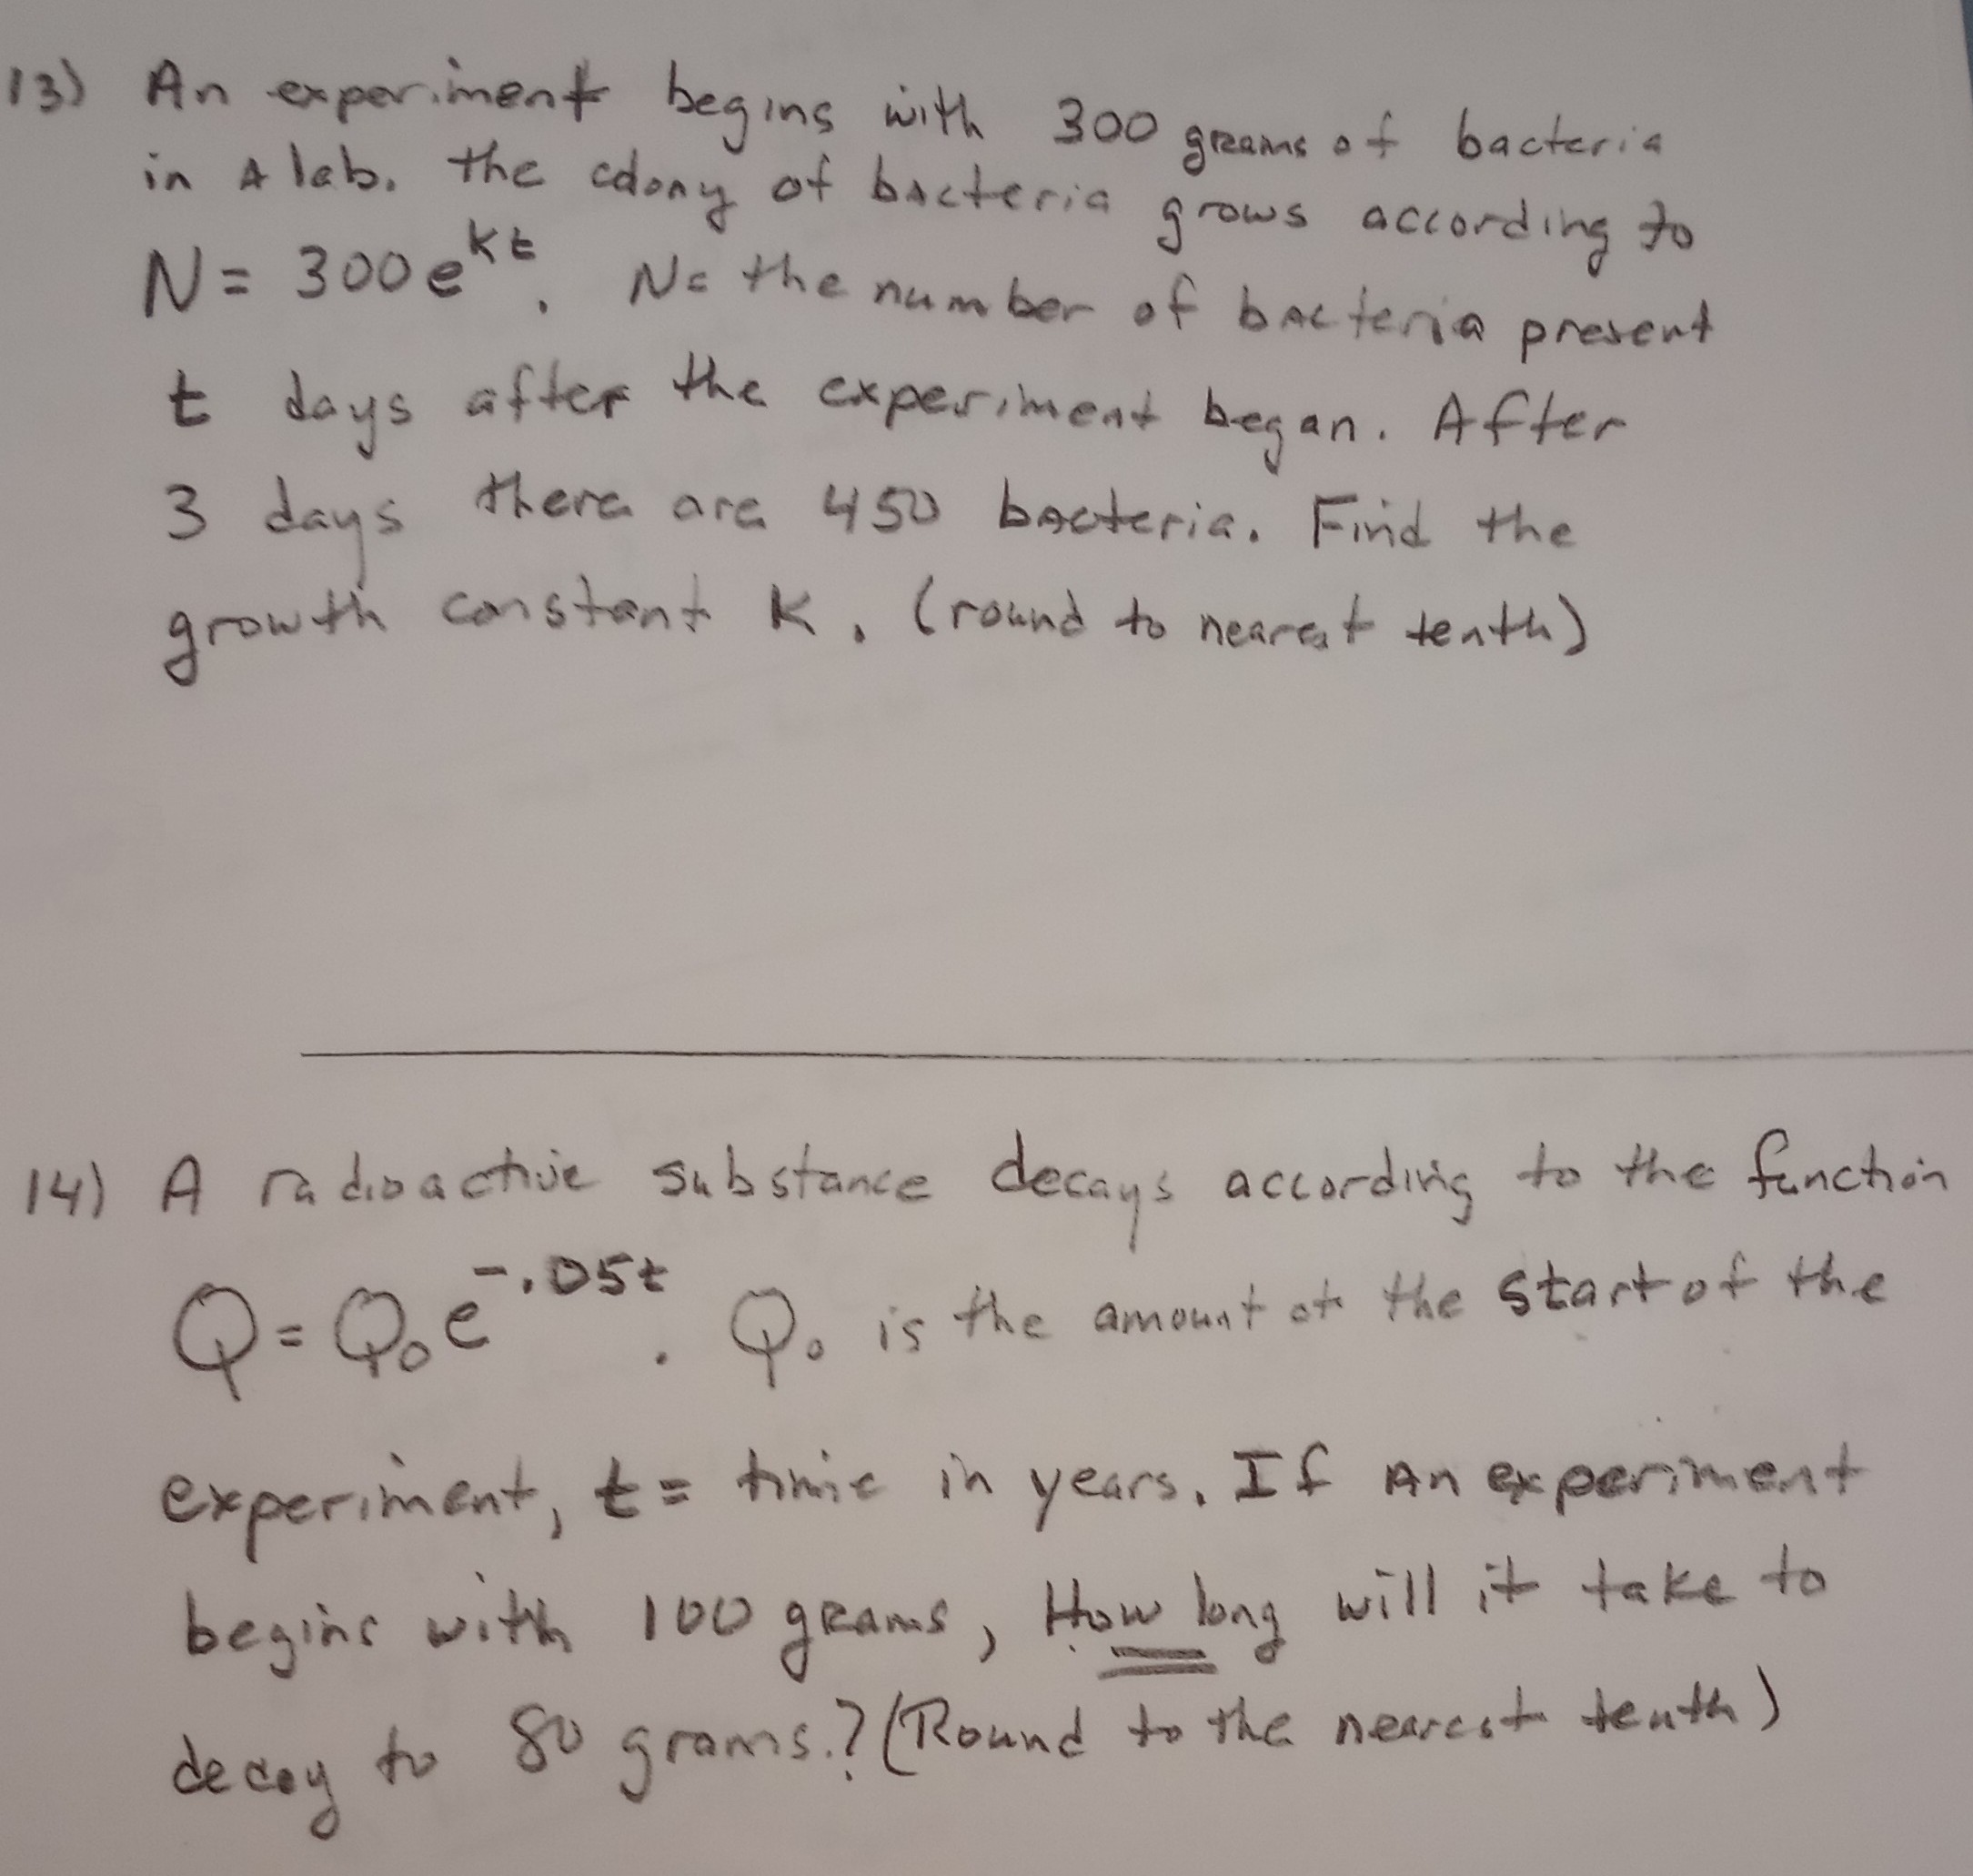 13) An experiment begins with 300 grams of bacteria
in A lab. the colony of bacteria grows according to
N = 300e^kt. N= the number of bacteria present
t days after the experiment began. After
3 days there are 450 bacteria. Find the
growth constant K. (round to nearest tenth)
14) A radioactive substance decays according to the function
Q = Q₀e^-.05t. Q₀ is the amount at the start of the
experiment, t = time in years. If An experiment
begins with 100 grams, How long will it take to
decay to 80 grams.? (Round to the nearest tenth)